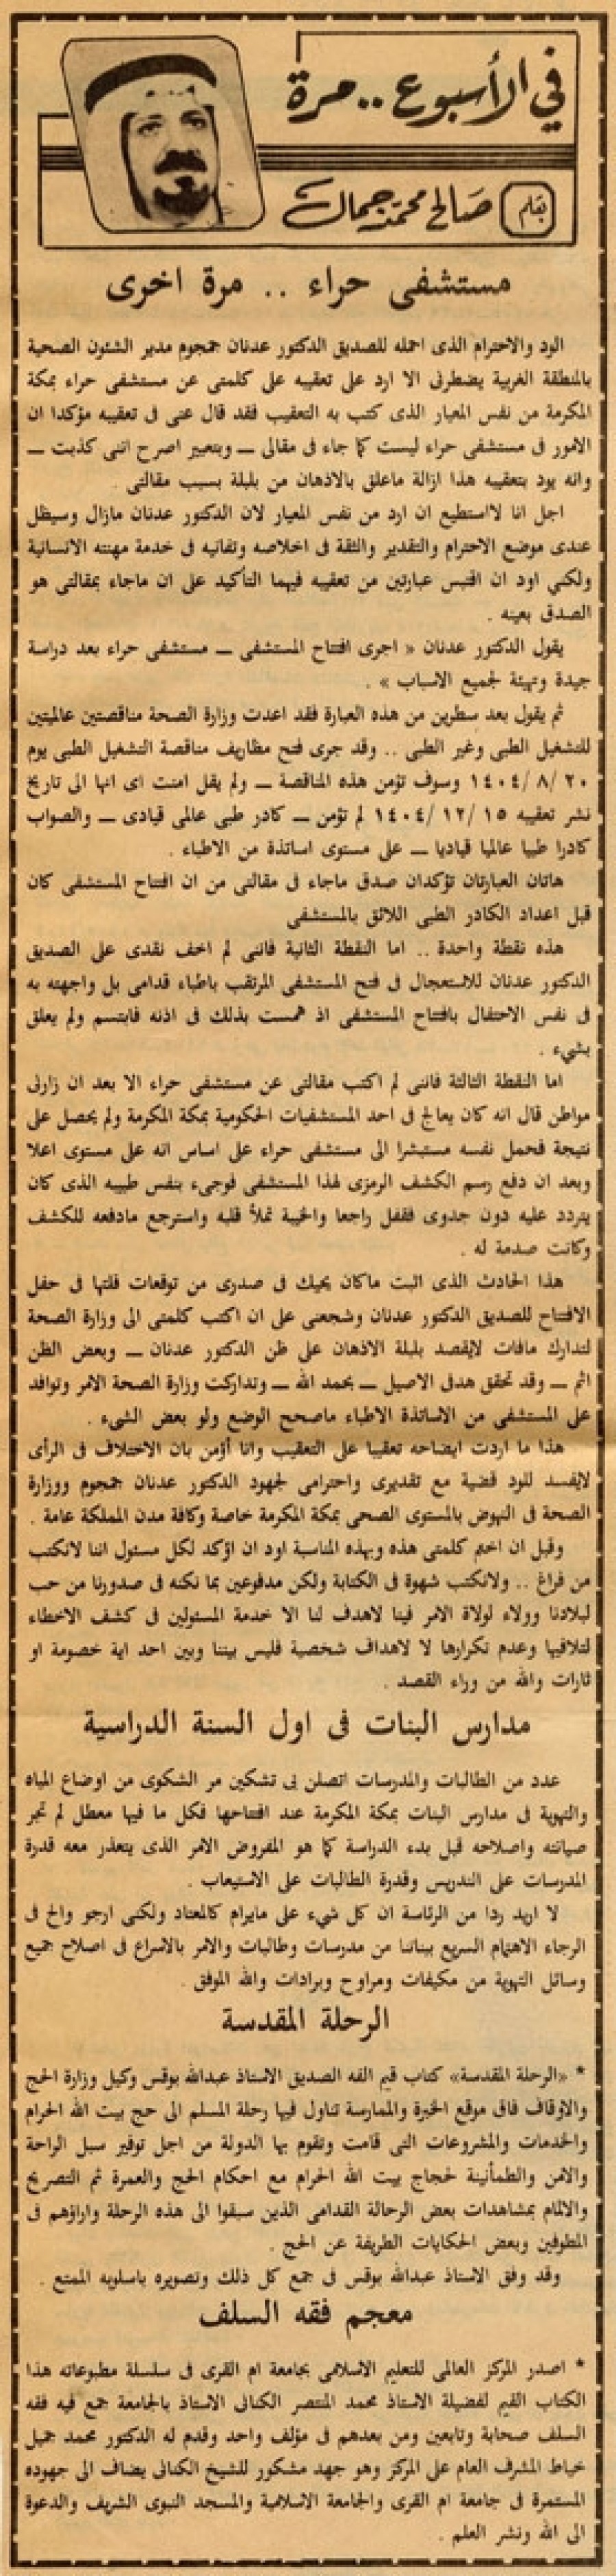 في الأسبوع .. مرة
بقلم صالح محمد جمال
مستشفى حراء .. مرة اخرى
الود والاحترام الذى احمله للصديق الدكتور عدنان جمجوم مدير الشئون الصحية
بالمنطقة الغربية يضطرنى الا ارد على تعقيبه على كلمتى عن مستشفى حراء بمكة
المكرمة من نفس المعيار الذى كتب به التعقيب فقد قال عنى فى تعقيبه مؤكدا ان
الامور فى مستشفى حراء ليست كما جاء فى مقالى ــ وبتعبير اصرح اننى كذبت ــ
وانه يود بتعقيبه هذا ازالة ماعلق بالاذهان من بلبلة بسبب مقالتى .
اجل انا لااستطيع ان ارد من نفس المعيار لان الدكتور عدنان مازال وسيظل
عندى موضع الاحترام والتقدير والثقة فى اخلاصه وتفانيه فى خدمة مهنته الانسانية
ولكنى اود ان اقتبس عبارتين من تعقيبه فيهما التأكيد على ان ماجاء بمقالتى هو
الصدق بعينه .
يقول الدكتور عدنان « اجرى افتتاح المستشفى ــ مستشفى حراء بعد دراسة
جيدة وتهيئة لجميع الاسباب » .
ثم يقول بعد سطرين من هذه العبارة فقد اعدت وزارة الصحة مناقصتين عالميتين
للتشغيل الطبى وغير الطبى .. وقد جرى فتح مظاريف مناقصة التشغيل الطبى يوم
٢٠ /٨ /١٤٠٤ وسوف تؤمن هذه المناقصة ــ ولم يقل امنت اى انها الى تاريخ
نشر تعقيبه ١٥ /١٢ /١٤٠٤ لم تؤمن ــ كادر طبى عالمى قيادى ــ والصواب
كادرا طبيا عالميا قياديا ــ على مستوى اساتذة من الاطباء .
هاتان العبارتان تؤكدان صدق ماجاء فى مقالتى من ان افتتاح المستشفى كان
قبل اعداد الكادر الطبى اللائق بالمستشفى
هذه نقطة واحدة .. اما النقطة الثانية فاننى لم اخف نقدى على الصديق
الدكتور عدنان للاستعجال فى فتح المستشفى المرتقب باطباء قدامى بل واجهته به
فى نفس الاحتفال بافتتاح المستشفى اذ همست بذلك فى اذنه فابتسم ولم يعلق
بشيء .
اما النقطة الثالثة فاننى لم اكتب مقالتى عن مستشفى حراء الا بعد ان زارنى
مواطن قال انه كان يعالج فى احد المستشفيات الحكومية بمكة المكرمة ولم يحصل على
نتيجة فحمل نفسه مستبشرا الى مستشفى حراء على اساس انه على مستوى اعلا
وبعد ان دفع رسم الكشف الرمزى لهذا المستشفى فوجىء بنفس طبيبه الذى كان
يتردد عليه دون جدوى فقفل راجعا والخيبة تملأ قلبه واسترجع مادفعه للكشف
وكانت صدمة له .
هذا الحادث الذى اثبت ماكان يحيك فى صدرى من توقعات قلتها فى حفل
الافتتاح للصديق الدكتور عدنان وشجعنى على ان اكتب كلمتى الى وزارة الصحة
لتدارك مافات لابقصد بلبلة الاذهان على ظن الدكتور عدنان ــ وبعض الظن
اثم ــ وقد تحقق هدفى الاصيل ــ بحمد الله ــ وتداركت وزارة الصحة الامر وتوافد
على المستشفى من الاساتذة الاطباء ماصحح الوضع ولو بعض الشىء .
هذا ما اردت ايضاحه تعقيبا على التعقيب وانا أؤمن بان الاختلاف فى الرأى
لايفسد للود قضية مع تقديرى واحترامى لجهود الدكتور عدنان جمجوم ووزارة
الصحة فى النهوض بالمستوى الصحى بمكة المكرمة خاصة وكافة مدن المملكة عامة .
وقبل ان اختم كلمتى هذه وبهذه المناسبة اود ان اؤكد لكل مسئول اننا لانكتب
من فراغ .. ولانكتب شهوة فى الكتابة ولكن مدفوعين بما نكنه فى صدورنا من حب
لبلادنا وولاء لولاة الامر فينا لاهدف لنا الا خدمة المسئولين فى كشف الاخطاء
لتلافيها وعدم تكرارها لا لاهداف شخصية فليس بيننا وبين احد اية خصومة او
ثارات والله من وراء القصد .
مدارس البنات فى اول السنة الدراسية
عدد من الطالبات والمدرسات اتصلن بى تشكين مر الشكوى من اوضاع المياه
والتهوية فى مدارس البنات بمكة المكرمة عند افتتاحها فكل ما فيها معطل لم تجر
صيانته واصلاحه قبل بدء الدراسة كما هو المفروض الامر الذى يتعذر معه قدرة
المدرسات على التدريس وقدرة الطالبات على الاستيعاب .
لا اريد ردا من الرئاسة ان كل شيء على مايرام كالمعتاد ولكنى ارجو والح فى
الرجاء الاهتمام السريع ببناتنا من مدرسات وطالبات والامر بالاسراع فى اصلاح جميع
وسائل التهوية من مكيفات ومراوح وبرادات والله الموفق .
الرحلة المقدسة
* «الرحلة المقدسة» كتاب قيم الفه الصديق الاستاذ عبدالله بوقس وكيل وزارة الحج
والاوقاف فاق موقع الخبرة والممارسة تناول فيها رحلة المسلم الى حج بيت الله الحرام
والخدمات والمشروعات التى قامت وتقوم بها الدولة من اجل توفير سبل الراحة
والامن والطمأنينة لحجاج بيت الله الحرام مع احكام الحج والعمرة ثم التصريح
والالمام بمشاهدات بعض الرحالة القدامى الذين سبقوا الى هذه الرحلة واراؤهم فى
المطوفين وبعض الحكايات الطريفة عن الحج .
وقد وفق الاستاذ عبدالله بوقس فى جمع كل ذلك وتصويره باسلوبه الممتع .
معجم فقه السلف
* اصدر المركز العالمى للتعليم الاسلامى بجامعة ام القرى فى سلسلة مطبوعاته هذا
الكتاب القيم لفضيلة الاستاذ محمد المنتصر الكتانى الاستاذ بالجامعة جمع فيه فقه
السلف صحابة وتابعين ومن بعدهم فى مؤلف واحد وقدم له الدكتور محمد جميل
خياط المشرف العام على المركز وهو جهد مشكور للشيخ الكتانى يضاف الى جهوده
المستمرة فى جامعة ام القرى والجامعة الاسلامية والمسجد النبوى الشريف والدعوة
الى الله ونشر العلم .